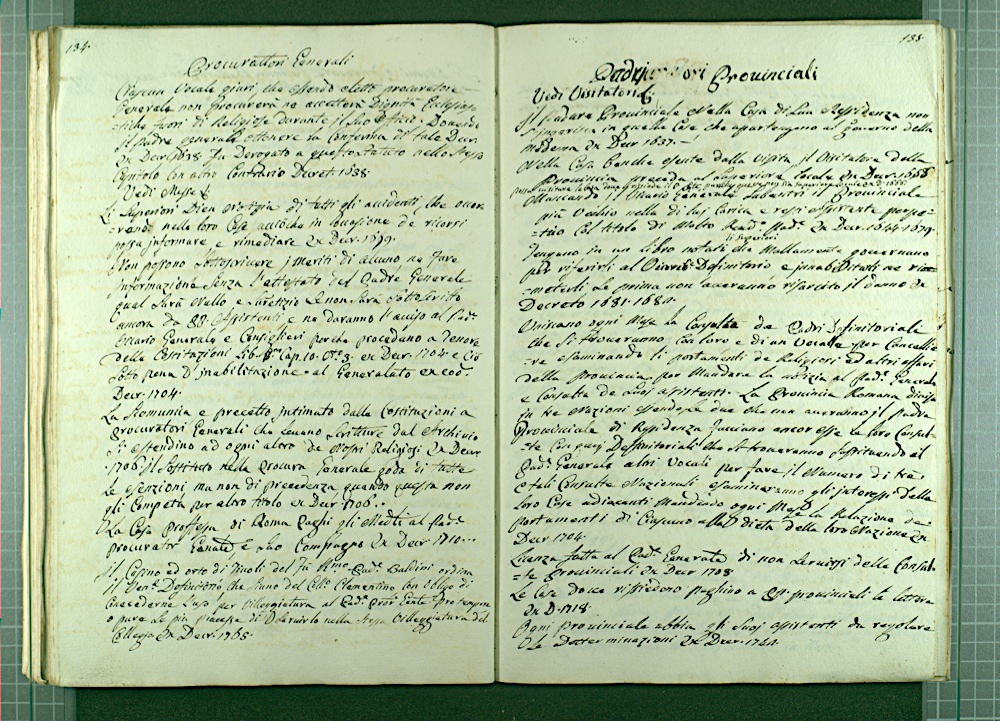 134.
Procurattori Generali
Ciascun Vocale giuri, che essendo eletto procuratore
Generale non procurerà ne accetterà Dignità Ecclesias
tiche fuori di Religione durante il suo Officio: Dovendo
il Padre Generale ottenere la Conferma di tale Decr.
Ex Decr. 1638. Fu Derogato a questo statuto nello stesso
Capitolo con altro Contrario Decret. 1638.
Vedi Messe
Li Superiori Dien notizia di tutti gli accidenti, che occor
rerano nelle loro Case accioche in occasione de ricorsi
possa informare, e rimediare Ex Decr. 1679.
Non possono sottoscrivere i meriti di alcuno ne fare
Informazione senza l'attestato del Padre Generale
qual sarà Nullo e surretizio se non sarà sottoscritto
ancora da PP. Assistenti e ne daranno l'avviso al Pad.
Vicario Generale e Consiglieri perche procedano a tenore
delle Costituzioni Lib. Cap. 10. N. 3. ex Decr. 1704 e Ciò
sotto pena D'inabilitazione al Generalato ex eod.
Decr. 1704.
La Scomunica e precetto intimato dalle Costituzioni a
Procuratori Generali che levano Scritture dal Archivio
si estendino ad ogni altro de Nostri Religiosi Ex Decr.
1706. il Sostituto nella Procura Generale goda di tutte
le esenzioni ma non di precedenza quando questa non
gli Competa per altro titolo ex Decr. 1706.
La Casa Professa di Roma Paghi gli Medici al Pad.
procurator Genale e suo Compagno Ex Decr. 1710...
Il Casino ed orto di Tivoli del fù Rmo Pad. Baldini ordina
il Ven. Definitorio che siano del Coll. Clementino con obligo di
Concederne l'uso per Villeggiatura al Pad. Proc. Genle pro tempore
o pure se più piacesse di servirlo nella stessa Villeggiatura del
Collegio Ex Decr. 1765.
135.
Padri Provinciali
Vedi Visitatori
Il Padre Provinciale nella Casa di sua Residenza non
s'ingerisca in quelle cose che appartengono al governo della
medema Ex Decr. 1637.
Nelle Case benche esente dalla visita il Visitatore della
Provincia preceda al superiore locale ex Decr. 1658
Mancando il Vicario Generale subentri il Provinciale
più Vecchio nella di lui Carica e resti assistente perpe-
tuo Col titolo di Molto Rend. Pad. Ex Decr. 1644. 1679.
li Superiori
Tengano in un Libro notati che Malamente governano
per riferirli al Definitorio e inabilitati ne rim
metterli se prima non averanno risarcito il danno da
Decreto 1681. 1684.
Uniscano ogni Mese la Consulta de Padri Definitoriale
che si troveranno con loro e di un Vocale per Cancellie
re esaminando li portamenti de Religiosi ed altri affari
della Provincia, per Mandare la notizia al Pad. Generale
e Consulta de suoi assistenti. La Provincia Romana divisa
in tre Nazioni essendoci due che non averanno il padre
Provinciale di Residenza facciano ancor esse la loro Consul-
ta Con quei Definitoriali che si troveranno sostituendo il
Pad. Generale altri Vocali per fare il Numero di tre
e tali Consulte Nazionali esamineranno gli interessi della
loro Case adiacenti Mandando ogni Mese la Relazione de
Portamenti di Ciascuno alla Dieta della loro Nazione Ex
Decr. 1704.
Licenza fatta al Pad. Generale di non servirsi della Consul-
ta Provinciali Ex Decr. 1708
Le Case Dove risiedono paghino a PP. provinciali le lettere
Ex D. 1718.
Ogni Provinciale abbia gli Suoi assistenti da regolare
Le Determinazioni Ex Decr. 1744.